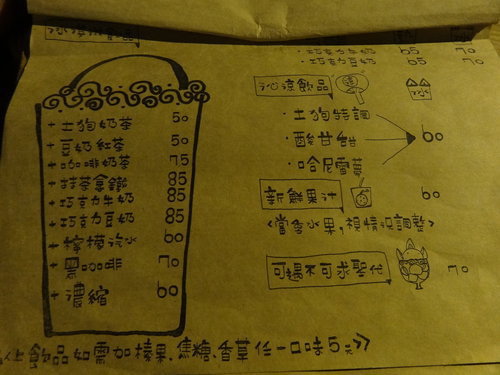 + 土狗奶茶 50
+ 豆奶紅茶 50
+ 咖啡奶茶 75
+ 抹茶拿鐵 85
+ 巧克力牛奶 85
+ 巧克力豆奶 85
+ 檸檬汽水 60
+ 黑咖啡 70
+ 濃縮 60
·巧克力牛奶 65 70
·巧克力豆奶 65 70
沁涼飲品 冰
·土狗特調
·酸甘甜 60
·哈尼蕾蒙
新鮮果汁 60
<當季水果,視情況調整>
可遇不可求聖代 70
飲品如需加榛果.焦糖.香草任一口味5元》